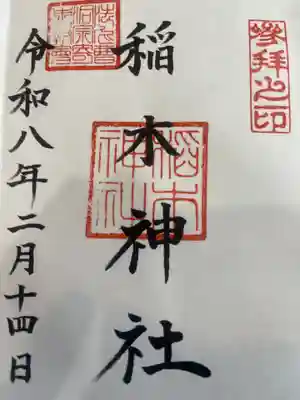 參拝之印
稲木神社
稲木
神社
令和八年二月十四日